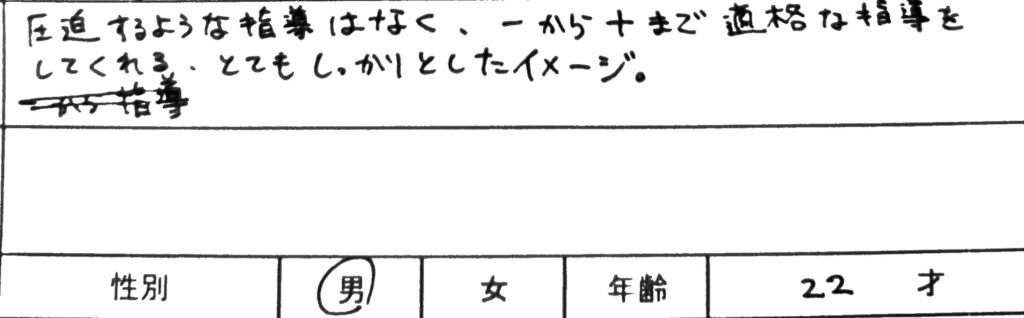 圧迫するような指導はなく、一から十まで適格な指導を
してくれる、とてもしっかりとしたイメージ。
から指導
性別 男 女 年齢 22 才